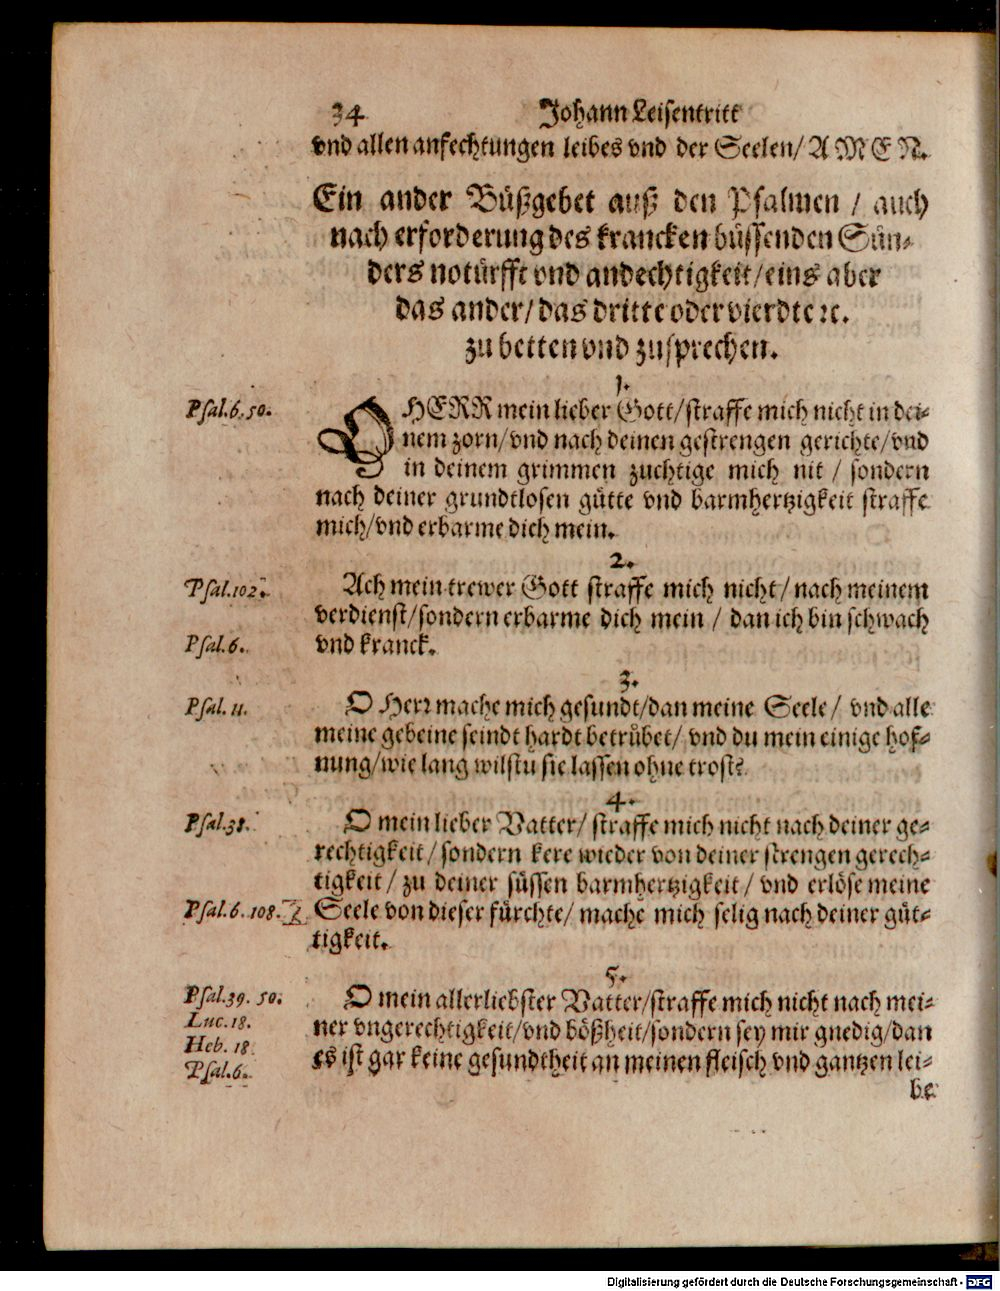 34 Johann Leisentritt
vnd allen anfechtungen leibes vnd der Seelen/ A M E N.
Ein ander Büßgebet auß den Psalmen / auch
nach erforderung des krancken büssenden Sün-
ders notürfft vnd andechtigkeit/eins aber
das ander/das dritte oder vierdte ꝛc.
zu betten vnd zusprechen.
1.
Psal.6.50. O HERR mein lieber Gott/straffe mich nicht in dei-
nem zorn/vnd nach deinen gestrengen gerichte/vnd
in deinem grimmen zuchtige mich nit / sondern
nach deiner grundtlosen gütte vnd barmhertzigkeit straffe
mich/vnd erbarme dich mein.
2.
Psal.102. Ach mein trewer Gott straffe mich nicht/ nach meinem
verdienst/sondern erbarme dich mein / dan ich bin schwach
Psal.6. vnd kranck.
3.
Psal. 11. O Herr mache mich gesundt/dan meine Seele/ vnd alle
meine gebeine seindt hardt betrübet/ vnd du mein einige hof-
nung/wie lang wilstu sie lassen ohne trost?
4.
Psal.38. O mein lieber Vatter/ straffe mich nicht nach deiner ge-
rechtigkeit/sondern kere wieder von deiner strengen gerech-
tigkeit/ zu deiner süssen barmhertzigkeit/ vnd erlöse meine
Psal.6.108. Seele von dieser fürchte/ mache mich selig nach deiner güt-
tigkeit.
5.
Psal.39. 50. O mein allerliebster Vatter/straffe mich nicht nach mei-
Luc.18. ner vngerechtigkeit/vnd bößheit/sondern sey mir gnedig/dan
Heb. 18. es ist gar keine gesundtheit an meinen fleisch vnd gantzen lei-
Psal.6. be
Digitalisierung gefördert durch die Deutsche Forschungsgemeinschaft - DFG